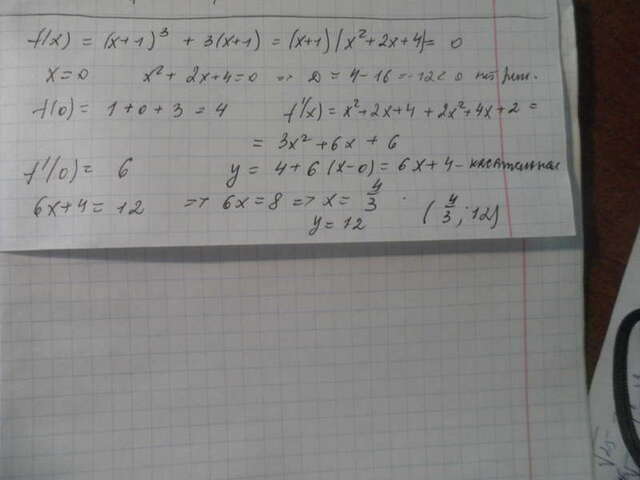 f(x) = (x+1)³ + 3(x+1) = (x+1)(x²+2x+4) = 0
x=0 x²+2x+4=0 => D = 4-16=-12<0 нет реш.
f(0) = 1+0+3 = 4 f'(x) = x²+2x+4+2x²+4x+2 =
= 3x²+6x+6
f'(0) = 6 y = 4+6(x-0) = 6x+4 - касательная
6x+4=12 => 6x=8 => x=4/3 . (4/3; 12)
y=12